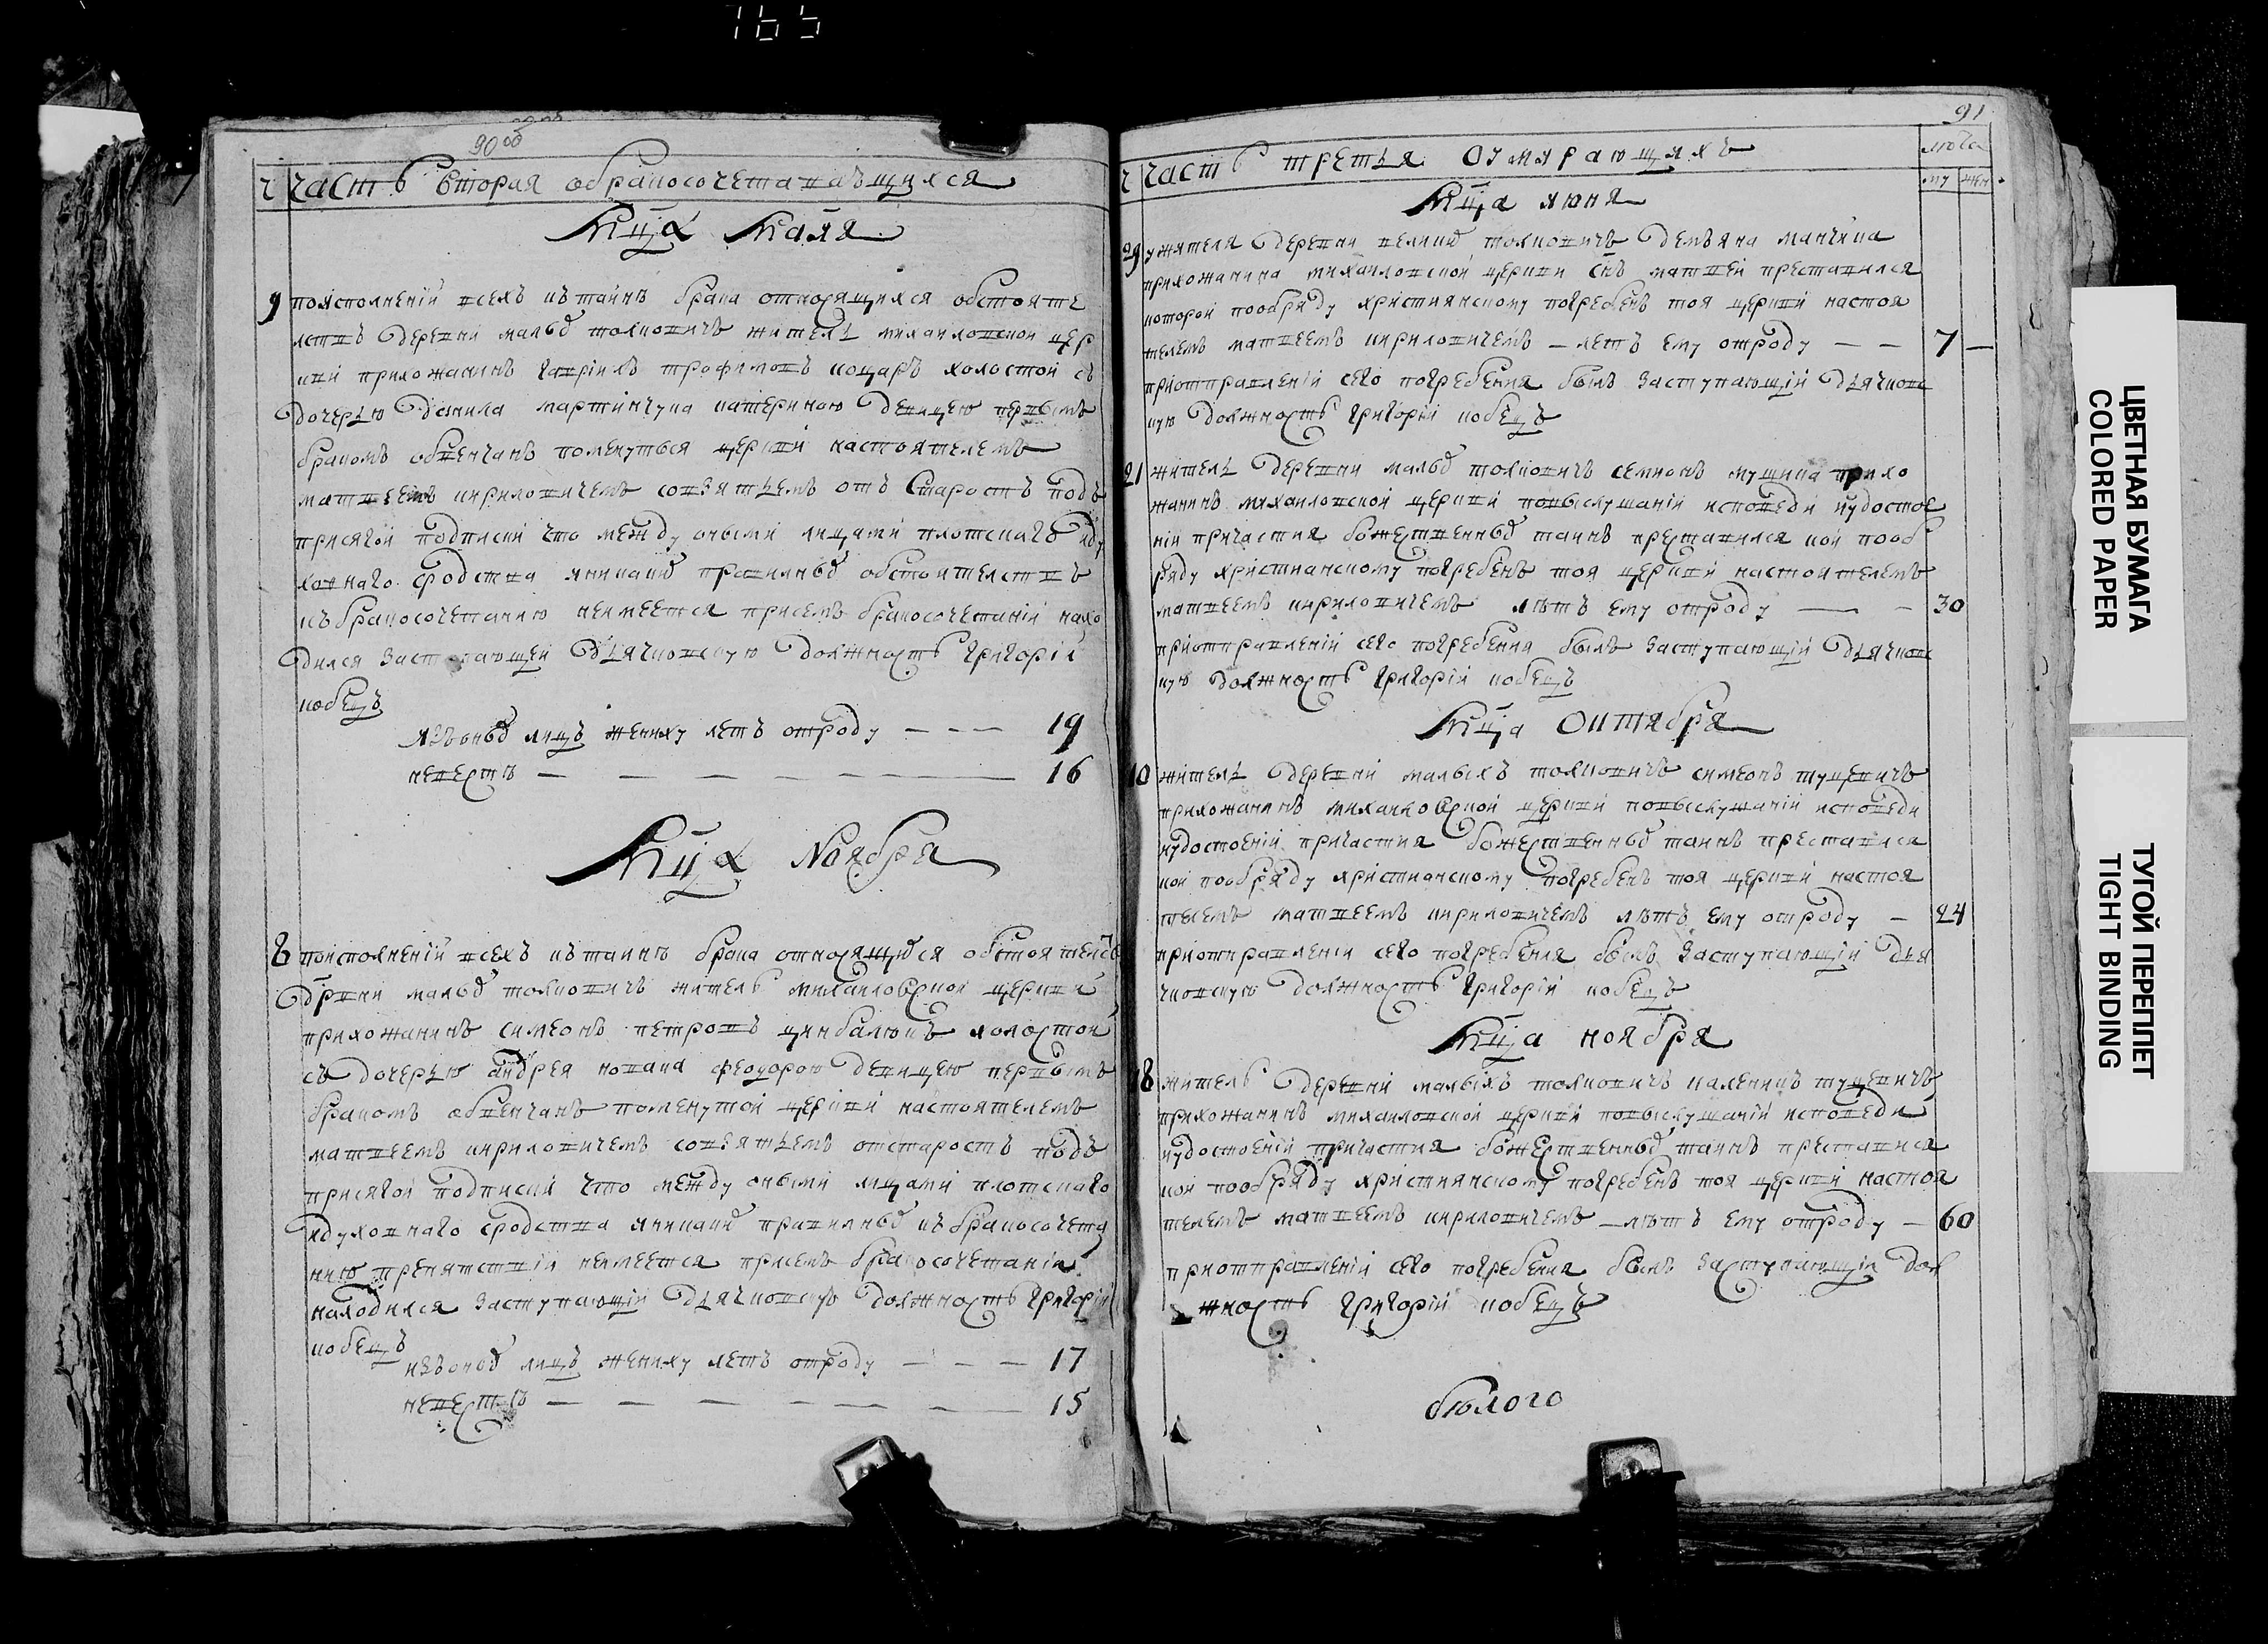 165
90 об
Ч Часть вторая обракосочетавающихся
Мца Маия
9 поисполнении всехъ къ таинѣ брака относящихся обстояте
лствъ деревни малых толковичъ жителъ михаиловской цер
кви прихожанинъ гавріилъ трофимовъ коцаръ холостой съ
дочерью данила мартинчука катериною девицею первымъ
бракомъ обвенчанъ поменутыя церкви настоятелемъ
матвеемъ кириловичемъ совзятьемъ отъ старостъ подъ
присягой подписки что между оными лицами плотскагъ иду
ховнаго сродства никаких правилных обстоятелствъ
къ бракосочетанию неимеется присемъ бракосочетаній нахо
дился заступающей дьячковскую должность григорій
кобецъ
изъоных лицъ жениху летъ отроду — — — 19
невестѣ — — — — — — 16
Мца Ноября
8 поисполнений всехъ къ таинѣ брака относящихся обстоятелс
дрвни малых толковичъ житель михаиловской церкви
прихожанинъ симеонъ петровъ цинбалюкъ холостой
съ дочерью андрея новака феодорою девицею первымъ
бракомъ обвенчанъ поменутой церкви настоятелемъ
матвеемъ кириловичемъ совзятьемъ отстаростъ подъ
присягой подписки что между оными лицами плотскаго
идуховнаго сродства никаких правилных къ бракосочета
нию препятствій неимеется присемъ бракосочетаніи
находился заступающій дьячковскую должность григорій
кобецъ
изъоных лицъ жениху летъ отроду — — — 17
невестѣ — — — — — — 15
91
Ч Часть третья Оумирающихъ
лѣта
му жен
Мца июня
29 ужителя деревни великих толковичъ демъяна
прихожанина михаиловской церкви снъ матвей преставился
которой пообряду християнскому погребенъ тоя церкви настоя
телемъ матвеемъ кириловичемъ — летъ ему отроду — — 7 —
приотправлений сего погребения былъ заступающій дьячковс
кую должность григорій кобецъ
21 жителъ деревни малых толковичъ семионъ прихо
жанинъ михаиловской церкви повыслушаній исповеди иудостое
ніи причастия божественных таинъ преставился кой пооб
ряду христианскому погребенъ тоя церкви настоятелемъ
матвеемъ кириловичемъ лѣтъ ему отроду — — 30
приотправленій сего погребения былъ заступающій дьячковс
кую должность григорій кобецъ
Мца Октября
10 жителъ деревни малыхъ толковичъ симеонъ туцевичъ
прихожанинъ михаиловской церкви повыслушаній исповеди
иудостоеній причастия божественных таинъ преставился
кой пообряду христианскому погребенъ тоя церкви настоя
телемъ матвеемъ кириловичемъ лѣтъ ему отроду — 24
приотправлении сего погребения былъ заступающій дья
чковскую должность григорій кобецъ
Мца ноября
18 житель деревни малыхъ толковичъ каленикъ туцевичъ
прихожанинъ михаиловской церкви повыслушаній исповеди
иудостоеній причастия божественных таинъ преставися
кой пообряду християнскому погребенъ тоя церкви настоя
телемъ матвеемъ кириловичемъ — лѣтъ ему отроду — 60
приотправленій сего погребения былъ заступающій дол
жность григорій кобецъ
бѣлого
ЦВЕТНАЯ БУМАГА
COLORED PAPER
ТУГОЙ ПЕРЕПЛЕТ
TIGHT BINDING